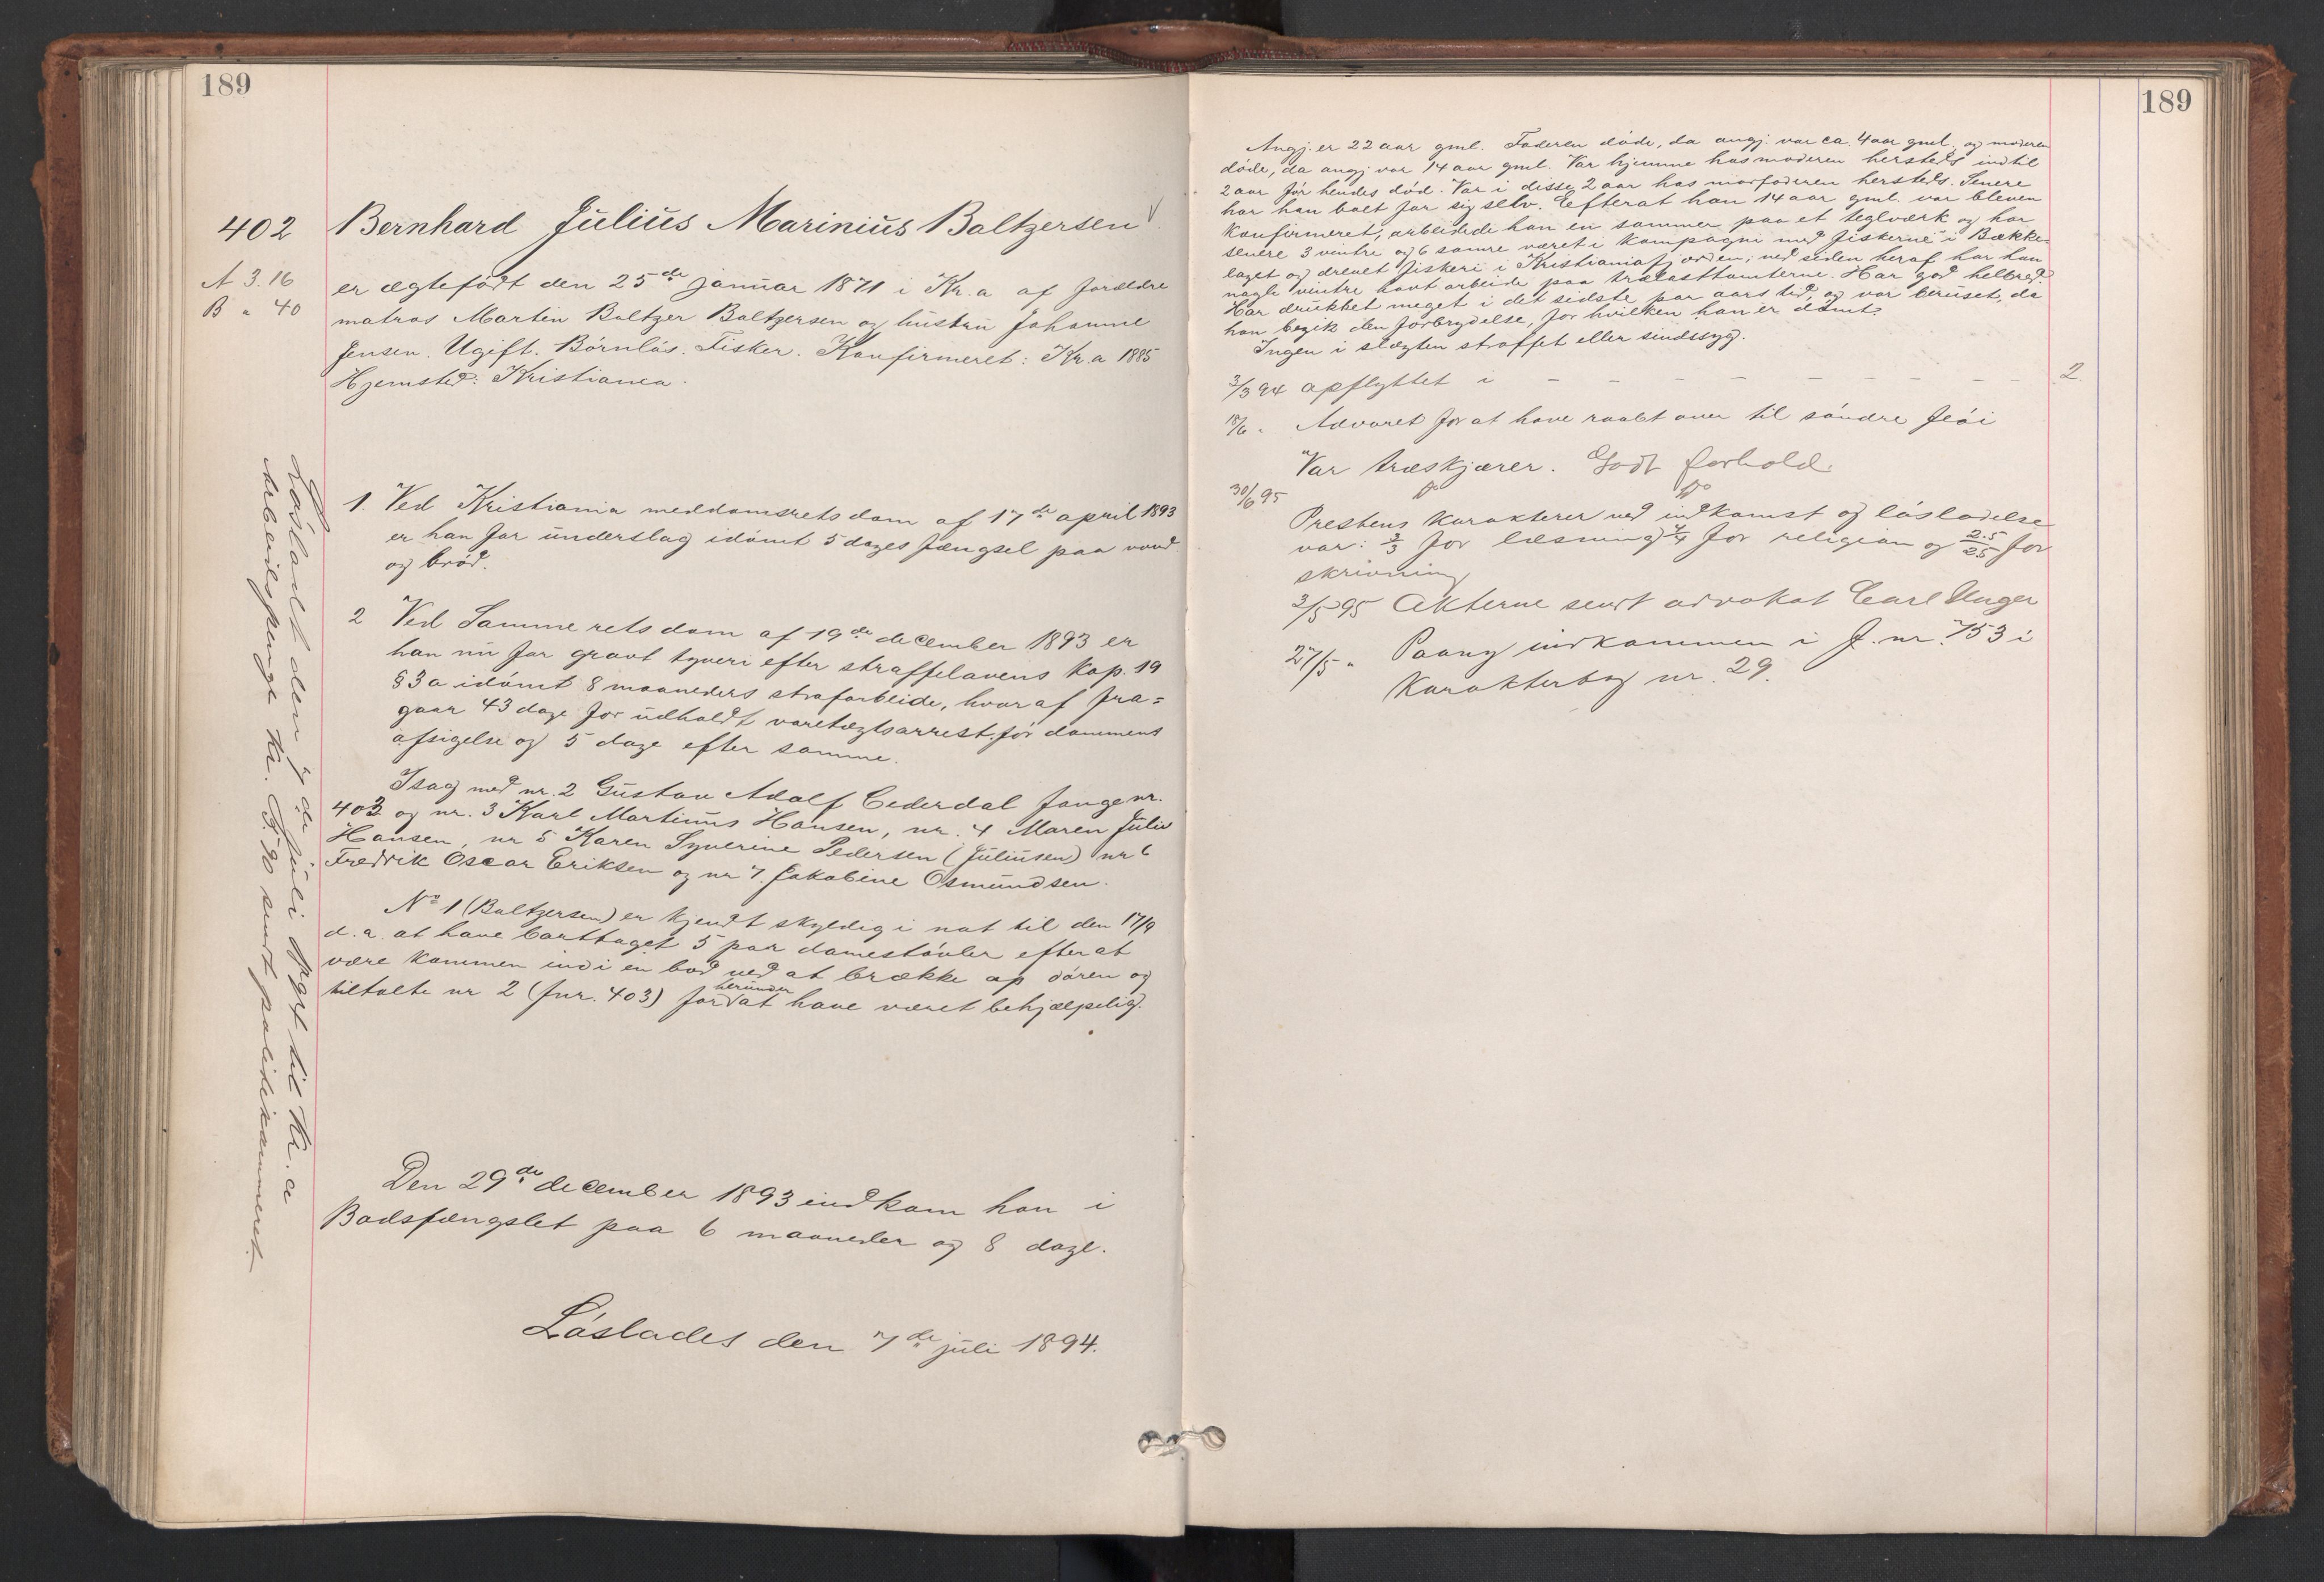 189
402
A 3.16
B " 40
Bernhard Julius Marinius Baltzersen
er ægtefødt den 25de januar 1871 i Kr.a af forældre
matros Martin Baltzer Baltzersen og hustru Johanne
Jensen. Ugift. Børnløs. Fisker. Konfirmeret: Kr.a 1885
Hjemsted: Kristiania.
1. Ved Kristiania meddomsrets dom af 17de april 1893
er han for underslag idømt 5 dages fængsel paa vand
og brød.
2 Ved Samme rets dom af 19de december 1893 er
han nu for grovt tyveri efter straffelovens Kap. 19
§ 3 a idømt 8 maaneders strafarbeide, hvoraf fra=
gaar 43 dage for udholdt varetægtsarrest før dommens
afsigelse og 5 dage efter samme.
I sag med nr. 2 Gustav Adolf Cederdal fange nr.
403 og nr. 3 Karl Martinus Hansen, nr. 4 Maren Julie
Hansen, nr 5 Karen Syverine Pedersen (Juliusen) nr 6
Fredrik Oscar Eriksen og nr 7. Jakobine Osmundsen.
No 1 (Baltzersen) er kjendt skyldig i nat til den 17/9
d.a. at have borttaget 5 par damestøvler efter at
være kommen ind i en bod ved at brække op døren og
tiltalte nr 2 (fnr. 403) for herunder at have været behjælpelig.
Den 29de december 1893 indkom han i
Bodsfængslet paa 6 maaneder og 8 dage.
Løslades den 7de juli 1894.
Løsladt den 7de juli 1894 til Kr.a
Arbeidspenge Kr. 5.90 sendt politikammeret.
189
Angj. er 22 aar gml. Faderen døde, da angj. var ca 4 aar gml. og moderen
døde, da angj var 14 aar gml. Var hjemme hos moderen hersteds indtil
2 aar før hendes død. Var i disse 2 aar hos morfaderen hersteds. Senere
har han boet for sig selv. Efterat han 14 aar gml. var bleven
Konfirmeret, arbeidede han en sommer paa et teglværk og har
senere 3 vintre og 6 somre været i kompagni med fiskerne i Bække-
laget og drevet fiskeri i Kristianiafjorden; ved siden heraf har han
nogle vintre havt arbeide paa trælasttomterne. Har god helbred.
Har drukket meget i det sidste par aars tid, og var beruset, da
han begik den forbrydelse, for hvilken han er dømt.
Ingen i slægten straffet eller sindssyg.
3/3 94 opflyttet i - - - - - - - - 2.
18/6 " Advaret for at have raabt over til søndre fløi
Var træskjærer. Godt forhold.
30/6 95
Prestens karakterer ved indkomst og løsladelse
var: 2/3 for læsning 4/4 for religion og 2.5/2.5 for
skrivning
3/5 95 Akterne sendt advokat Carl Unger
27/5 " Paany indkommen i f. nr. 753 i
Karakterbog nr. 29.